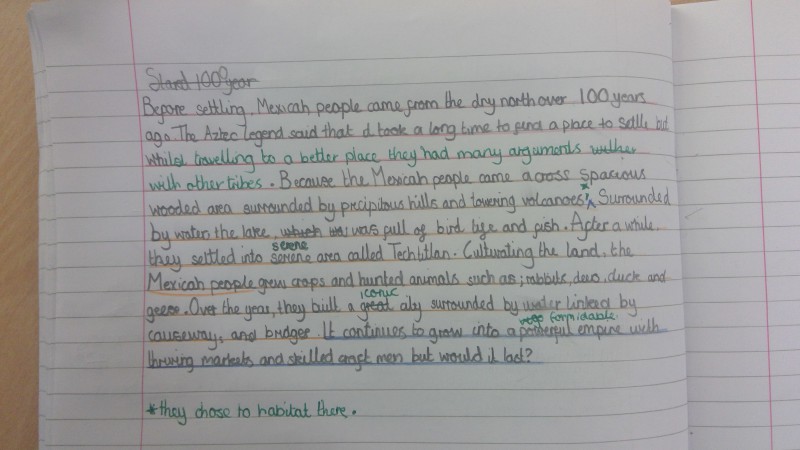 Stard 100 year
Before settling, Mexicah people came from the dry north over 100 years
ago. The Aztec Legend said that it took a long time to find a place to settle but
whilst travelling to a better place they had many arguments
with other tribes. Because the Mexicah people came across spacious
wooded area surrounded by precipitous hills and towering volcanoes*. Surrounded
by water, the lake, was full of bird life and fish. After a while,
serene
they settled into area called Techtitlan. Cultivating the land, the
Mexicah people grew crops and hunted animals such as; rabbits, deer, duck and
iconic
geese. Over the year, they built a great city surrounded by water linked by
formidable
causeways, and bridges. It continues to grow into a powerful empire with
thriving markets and skilled craft men but would it last?
*they chose to habitat there.